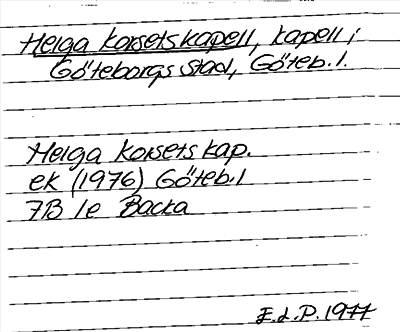 Helga Korsets kapell, kapell i
Göteborgs stad, Göteb. l.
Helga Korsets kap.
ek (1976) Göteb. l
7B 1e Backa
E.L.P. 1977